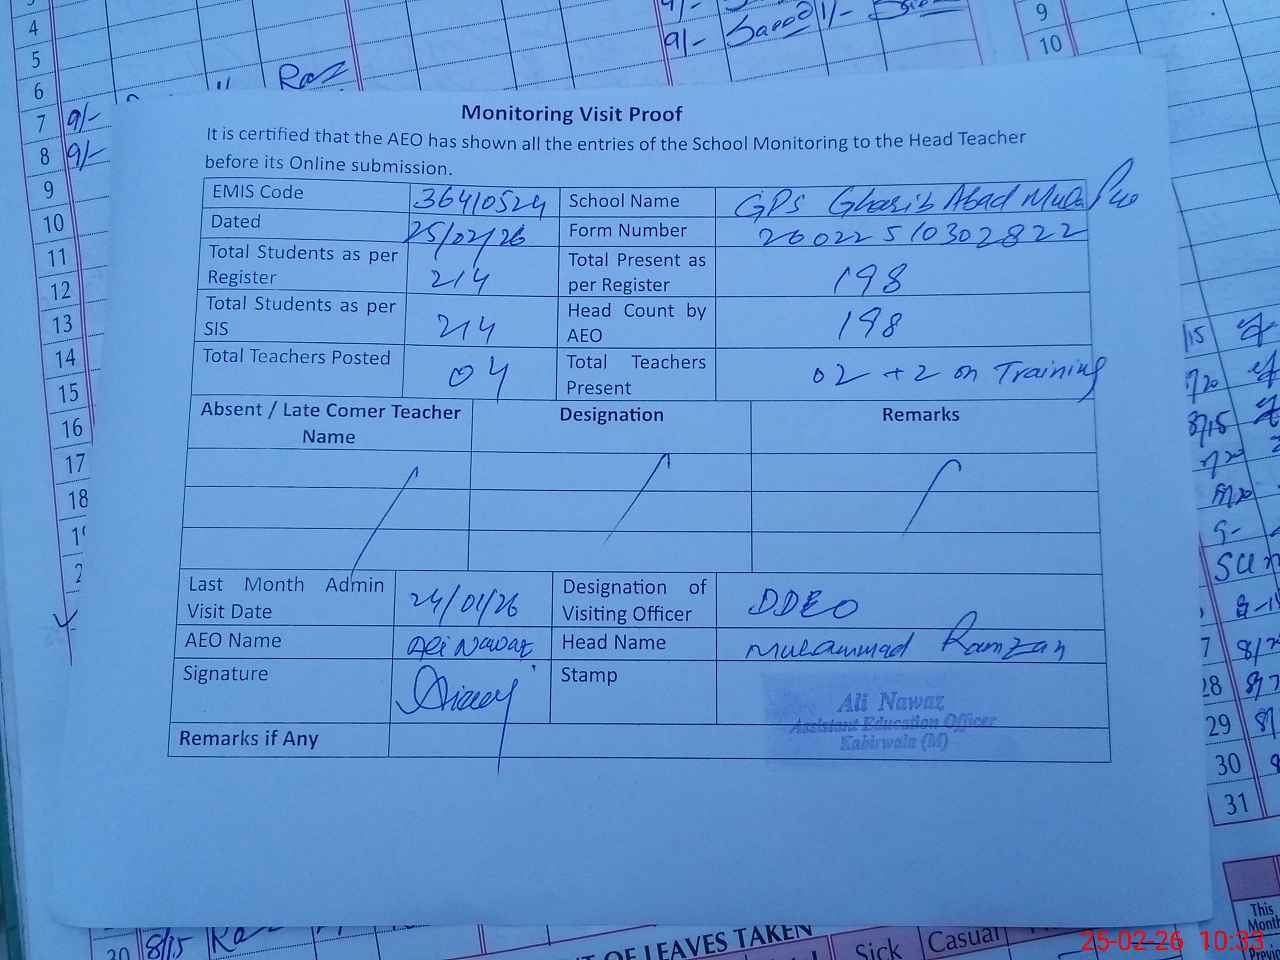 Monitoring Visit Proof
It is certified that the AEO has shown all the entries of the School Monitoring to the Head Teacher
before its Online submission.
EMIS Code 36410524 School Name GPS Gharib Abad Mulla Pur
Dated 25/02/26 Form Number 26022510302822
Total Students as per Register 214 Total Present as per Register 198
Total Students as per SIS 214 Head Count by AEO 198
Total Teachers Posted 04 Total Teachers Present 02 + 2 on Training
Absent / Late Comer Teacher Name Designation Remarks
Last Month Admin Visit Date 24/01/26 Designation of Visiting Officer DDEO
AEO Name Ali Nawaz Head Name Muhammad Ramzan
Signature Stamp
Ali Nawaz
Assistant Education Officer
Kabirwala (M)
Remarks if Any
4
5
6
7 9/-
8 9/-
9
10
11
12
13
14
15
16
17
18
9
10
28
29
30
31
8/15
OF LEAVES TAKEN
Sick Casual
This
Month
25-02-26 10:33